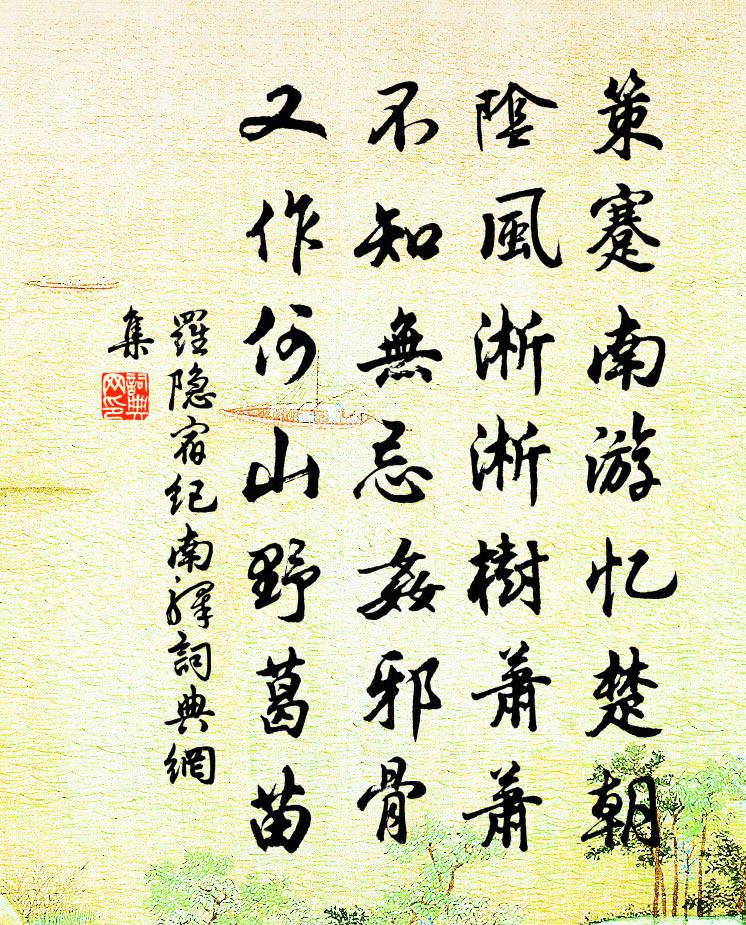 策蹇南游忆楚朝
陰風淅淅樹蕭蕭
不知無忌姦邪骨
又作何山野葛苗
羅隐宿纪南驛詞典網
集
詞典网印